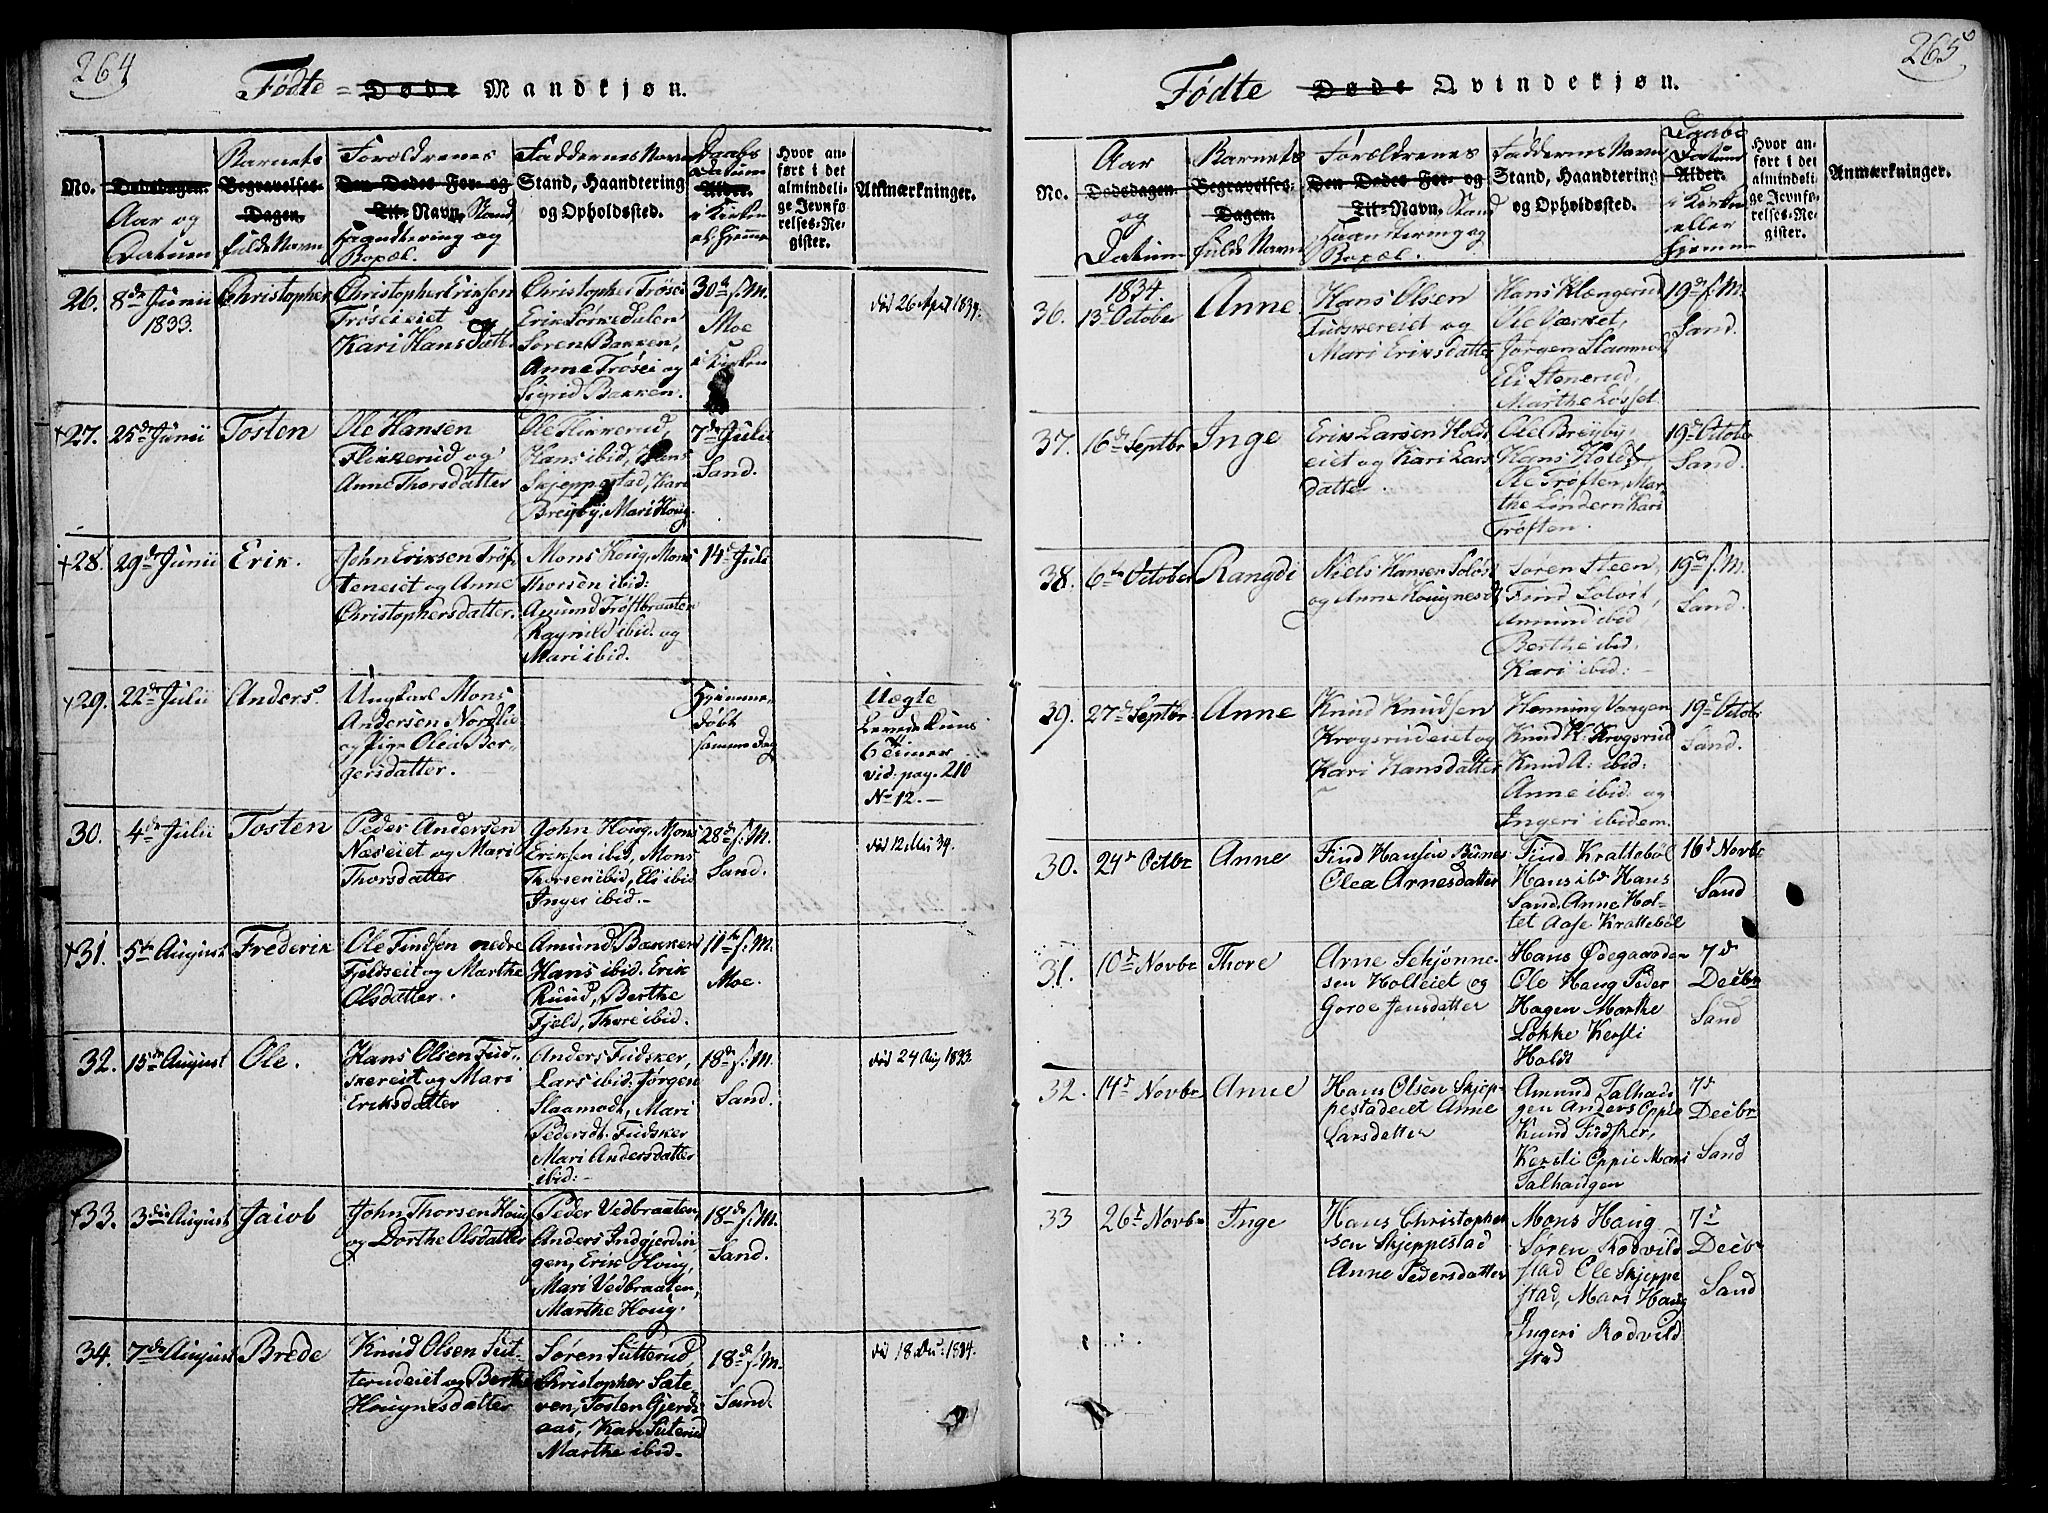 264
Fødte = Døde Mandkjøn.
No.
Dødsdagen.
Aar og
Datum
Barnets
Begravelses-
Dagen.
fulde Navn
Foreldrenes
Den Dødes For- og
Til-Navn, Stand,
Haandtering og
Bopæl.
Faddernes Navn
Stand, Haandtering
og Opholdssted.
Daabs
Datum
Alder.
i Kirken
el. Hjemme
Hvor an-
ført i det
almindeli-
ge Jevnfø-
relses-Re-
gister.
Anmærkninger.
26.
8de Junii
1833.
Christopher
Christopher Eriksen
Trøseieiet og
Kari Hansdatter
Christopher Trøsei
Erik Sørkedalen
Søren Bakken,
Anne Trøsei og
Sigrid Bakken.
30te f. M.
Moe
i Kirken
død 26 April 1834.
+27.
25de Junii
Tosten
Ole Hansen
Flikkerud og
Anne Thorsdatter
Ole Flikkerud,
Hans ibid, Hans
Skjeppestad, Kari
Breyby, Mari Houg.
7de Julii
Sand.
+28.
29de Junii
Erik.
John Eriksen Trøf-
teneiet og Anne
Christophersdatter.
Mons Houg, Mons
Thorsen ibid:
Amund Trøftbraaten
Ragnild ibid. og
Mari ibid.
14de Juli
+29.
22de Julii
Anders
Ungkarl Mons
Andersen Nordlie
og Pige Olea Bor-
gersdatter.
Hjemme-
døbt
samme Dag
Uegte
Levede kuns
6 Timer
vid: pag. 210
No 12.-
30.
4de Julii
Tosten
Peder Andersen
Næseiet og Mari
Thorsdatter
John Houg, Mons
Eriksen ibid, Mons
Thorsen ibid, Eli ibid
Inger ibid.-
28de f. M.
Sand.
død 12 Mai 34.
+31.
5te August
Frederik
Ole Findsen nedre
Fjeldseit og Marthe
Olsdatter.
Amund Bakken
Hans ibid. Erik
Ruud, Berthe
Fjeld, Thore ibid.
11te f. M.
Moe.
32.
15de August
Ole.
Hans Olsen Fud-
skereiet og Mari
Eriksdatter
Anders Fudsker,
Lars ibid. Jørgen
Slaamodt, Mari
Pedersdt. Fudsker
Mari Andersdatter
ibid:-
18de f. M.
Sand.
død 24 Aug 1833.
+33.
3die August
Jacob
John Thorsen Houg
og Dorthe Olsdatter
Peder Vedbraaten,
Anders Indgjerdin-
gen, Erik Houg,
Mari Vedbraaten,
Marthe Houg.
18de f. M.
Sand.
34.
7de August
Brede
Knud Olsen Sut-
terudeiet og Berthe
Hougnesdatter
Søren Sutterud,
Christopher Sæte-
ven, Tosten Gjerds-
aas, Kari Suterud
Marthe ibid-
18de f. M.
Sand.
død 18 Dec: 1834.
265
Fødte Døde Qvindekjøn.
No.
Aar
Dødsdagen.
og
Datum
Barnets
Begravelses-
Dagen.
fulde Navn
Foreldrenes
Den Dødes For- og
Til-Navn, Stand
Haandtering og
Bopæl.
Faddernes Navn,
Stand, Haandtering
og Opholdssted.
Daabs
Datum
Alder.
i Kirken
eller
hjemme
Hvor an-
ført i det
almindeli-
ge Jevnfø-
relses-Re-
gister.
Anmærkninger.
36.
1834.
13de October
Anne
Hans Olsen
Fudskereiet og
Mari Eriksdatter
Hans Klængerud
Ole Værket,
Jørgen Slaamodt
Eli Stenerud,
Marthe Losset
19de f. M.
Sand.
37.
16de Septbr
Inge
Erik Larsen Holdt
eiet og Kari Lars
datter.
Ole Breyby,
Hans Holdt
Ole Trøften, Mar-
the Lindern Kari
Trøften.
19de October
Sand.
38.
6te October
Rangdi
Niels Hansen
og Anne Hougnesd
Søren Steen,
Find Solvit,
Amund ibid,
Berthe ibid.
Kari ibid:-
19de f. M.
Sand.
39.
27de Septbr
Anne
Knud Knudsen
Krogsrudeiet og
Kari Hansdatter
Henning Vangen
Knud K: Krogsrud
Knud A: ibid:
Anne ibid: og
Ingeri ibidem.
19de Octobr
Sand.
30.
24d Octbr
Anne
Find Hansen
Olea Arnesdatter
Find Krattebøl
Hans ibd Hans
Sand, Anne Hol-
tet Aase Krattebøl
16d Novbr
Sand
31.
10d Novbr
Thore
Arne Schjønne-
sen Holteiet og
Goroe Jensdatter
Hans Ødegaarden
Ole Haug Peder
Hagen Marthe
Løkke Kersti
Holdt
7d
Decbr
Sand
32.
14d Novbr
Anne
Hans Olsen Skjep-
pestadeiet Anne
Larsdatter
Amund Talhau-
gen Anders Oppie
Knud Fudsker,
Kersti Oppie Mari
Talhaugen
7d
Decbr
Sand
33
26d Novbr
Inge
Hans Christopher
sen Skjeppestad
Anne Pedersdatter
Mons Haug
Søren Rodvild
stad Ole Skjeppe
stad, Mari Haug
Ingeri Rodvild
stad
7d
Decbr
Sand